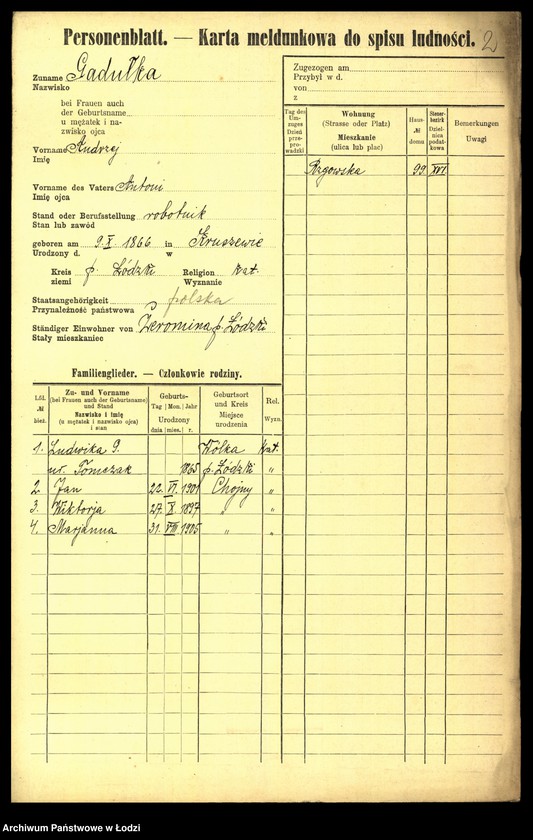 Personenblatt. — Karta meldunkowa do spisu ludności. 2
Zuname Gadułka
Nazwisko
bei Frauen auch
der Geburtsname
u mężatek i na-
zwisko ojca
Vorname Andrzej
Imię
Vorname des Vaters Antoni
Imię ojca
Stand oder Berufsstellung robotnik
Stan lub zawód
geboren am 9. X. 1866 in Kruszewie
Urodzony d. w
Kreis p. Łódzki Religion kat.
ziemi Wyznanie
Staatsangehörigkeit polska
Przynależność państwowa
Ständiger Einwohner von Żeromina p. Łódzki
Stały mieszkaniec
Zugezogen am
Przybył w d.
von
z
Tag des Um-zuges Dzień prze-prowadzki
Wohnung (Strasse oder Platz) Mieszkanie (ulica lub plac)
Haus- № domu
Steuer-bezirk Dziel-nica podat-kowa
Bemerkungen Uwagi
Rzgowska 99. XVI
Familienglieder. — Członkowie rodziny.
Lfd. № bież.
Zu- und Vorname (bei Frauen auch der Geburtsname) und Stand Nazwisko i imię (u mężatek i nazwisko ojca) i stan
Geburts- Tag Mon. Jahr Urodzony dnia mies. r.
Geburtsort und Kreis Miejsce urodzenia
Rel. Wyzn.
1. Ludwika G. Wólka kat.
ur. Tomczak 1865 p. Łódzki "
2. Jan 22. VI. 1901 Chojny "
3. Wiktorja 27. X. 1897 " "
4. Marjanna 31. VIII. 1905 " "
Archiwum Państwowe w Łodzi